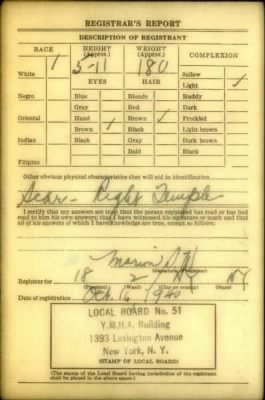 REGISTRAR'S REPORT
DESCRIPTION OF REGISTRANT
RACE HEIGHT (Approx.) WEIGHT (Approx.) COMPLEXION
White 5-11 180 Sallow
EYES HAIR Light ✓
Negro Blue Blonde Ruddy
Gray Red Dark
Oriental Hazel Brown ✓ Freckled
Brown ✓ Black Light brown
Indian Black Gray Dark brown
Bald Black
Filipino
Other obvious physical characteristics that will aid in identification
Scar - Right Temple
I certify that my answers are true; that the person registered has read or has had
read to him his own answers; that I have witnessed his signature or mark and that
all of his answers of which I have knowledge are true, except as follows:
Marion
Registrar for 18 2 NY NY
Date of registration Oct. 16 1940
LOCAL BOARD No. 51
Y.M.H.A. Building
1393 Lexington Avenue
New York, N. Y.
(STAMP OF LOCAL BOARD)
(The stamp of the Local Board having jurisdiction of the registrant
shall be placed in the above space.)